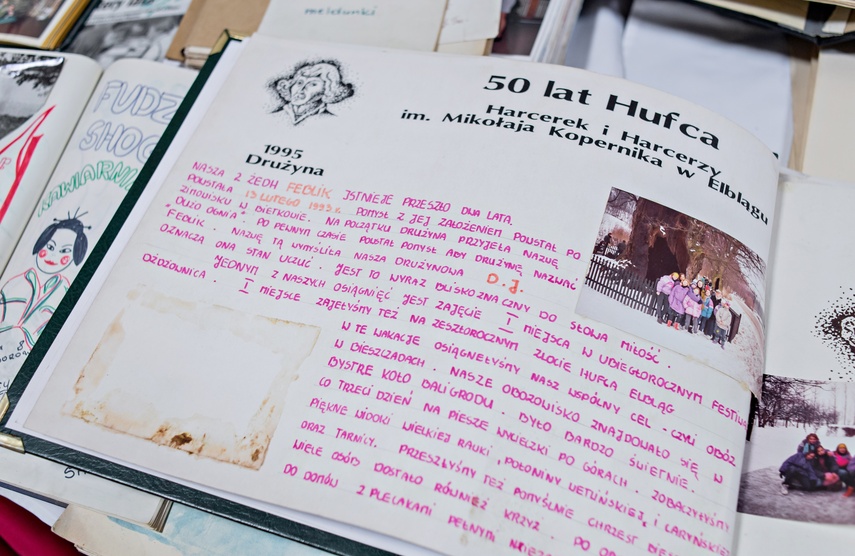 meldunki
FUDZ
SHOG
KAWIARNIA
50 lat Hufca
Harcerek i Harcerzy
im. Mikołaja Kopernika w Elblągu
1995
Drużyna
NASZA 2 ŻEDH FEBLIK ISTNIEJE PRZESZŁO DWA LATA.
POWSTAŁA 13 LUTEGO 1993 r. POMYSŁ Z JEJ ZAŁOŻENIEM POWSTAŁ PO
ZIMOWISKU W BIETKOWIE. NA POCZĄTKU DRUŻYNA PRZYJĘŁA NAZWĘ
"DUŻO OGNIA". PO PEWNYM CZASIE POWSTAŁ POMYSŁ ABY DRUŻYNĘ NAZWAĆ
FEBLIK. NAZWĘ TĄ WYMYŚLIŁA NASZA DRUŻYNOWA D.J.
OZNACZA ONA STAN UCZUĆ. JEST TO WYRAZ BLISKOZNACZNY DO SŁOWA MIŁOŚĆ.
JEDNYM Z NASZYCH OSIĄGNIĘĆ JEST ZAJĘCIE I MIEJSCA W UBIEGŁOROCZNYM
I MIEJSCE ZAJĘŁYŚMY TEŻ NA ZESZŁOROCZNYM ZLOCIE HUFCA ELBLĄG
W TE WAKACJE OSIĄGNĘŁYŚMY NASZ WSPÓLNY CEL - CZYLI OBÓZ
W BIESZCZADACH. NASZE OBOZOWISKO ZNAJDOWAŁO SIĘ W
BYSTRE KOŁO BALIGRODU. BYŁO BARDZO ŚWIETNIE.
CO TRZECI DZIEŃ NA PIESZE WYCIECZKI PO GÓRACH. ZOBACZYŁYŚMY
PIĘKNE WIDOKI WIELKIEJ RAWKI, POŁONINY WETLIŃSKIEJ I CARYŃSKIEJ
ORAZ TARNICY. PRZESZŁYŚMY TEŻ POMYŚLNIE CHRZEST
WIELE OSÓB DOSTAŁO RÓWNIEŻ KRZYŻ. PO
DO DOMÓW Z PLECAKAMI PEŁNYMI